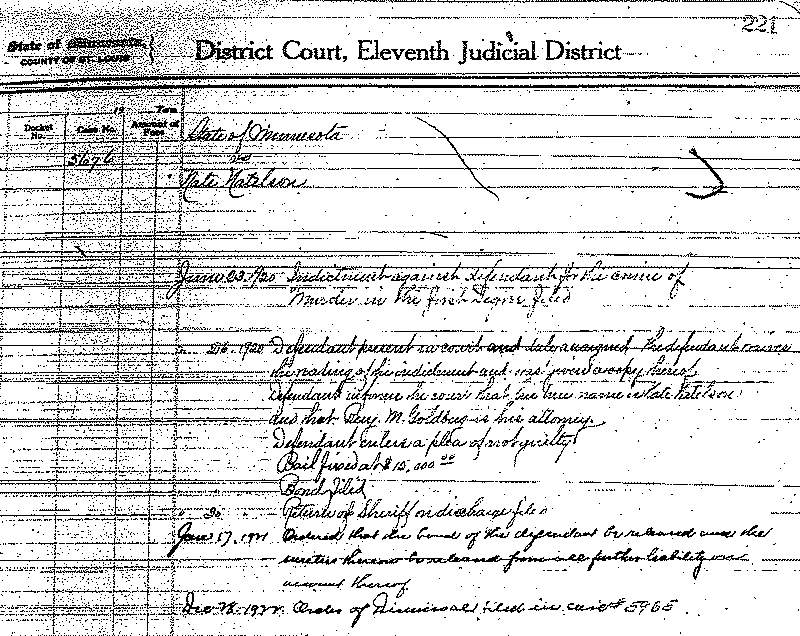 221
State of Minnesota,
COUNTY OF ST. LOUIS
District Court, Eleventh Judicial District
Docket No.
Case No.
Amount of Fees
State of Minnesota
vs
Nate Natelson
1920 Indictment against defendant for the crime of
Murder in the First Degree filed
1920 Defendant present in court and duly arraigned. The defendant waives
the reading of the indictment and was given a copy thereof
Defendant informs the court that his true name is Nate Natelson
and that Benj. M. Goldberg is his attorney
Defendant enters a plea of not guilty
Bail fixed at $15,000 00
Bond filed
" 30 " Return of Sheriff on discharge filed
Jan 17, 1921 Ordered that the bond of the defendant be released and the
sureties thereon be released from all further liability on
account thereof
Dec 1922 Order of Dismissal filed in case # 5965